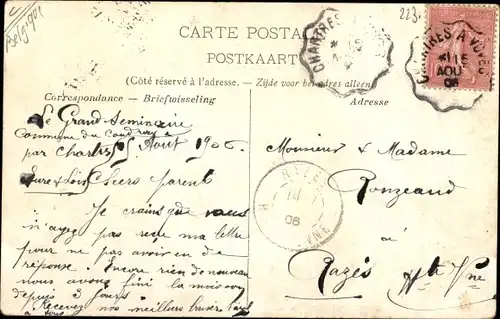 CARTE POSTALE
POSTKAART
(Côté réservé à l'adresse. - Zijde voor het adres alleen
Correspondance - Briefwisseling
Adresse
223.
CHARTRES A
CHARTRES A
15
AOU
06
Belgique
Le Grand Séminaire
Commune du Coudray
par Chartres 15 Août 1906
Eure & Loir Chers parents
Je crains que vous
n'ayez pas reçu ma lettre
pour ne pas avoir en de
réponse. Encore rien de nouveau
nous avons fini la moisson
depuis 3 jours
Recevez nos meilleurs baisers
Monsieur & Madame
Ronzeaud
à
Razès Hte Vne
06